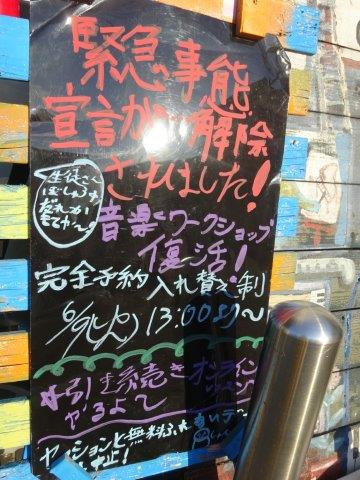 緊急事態
宣言が解除
されました!
生徒さん
ぼしゅう中
だれか
きてや〜
音楽ワークショップ
復活!
完全予約入れ替え制
6/9(火)13:00より〜
引き続き オンライン
やるよ〜
無料ふれあいデー
中止!